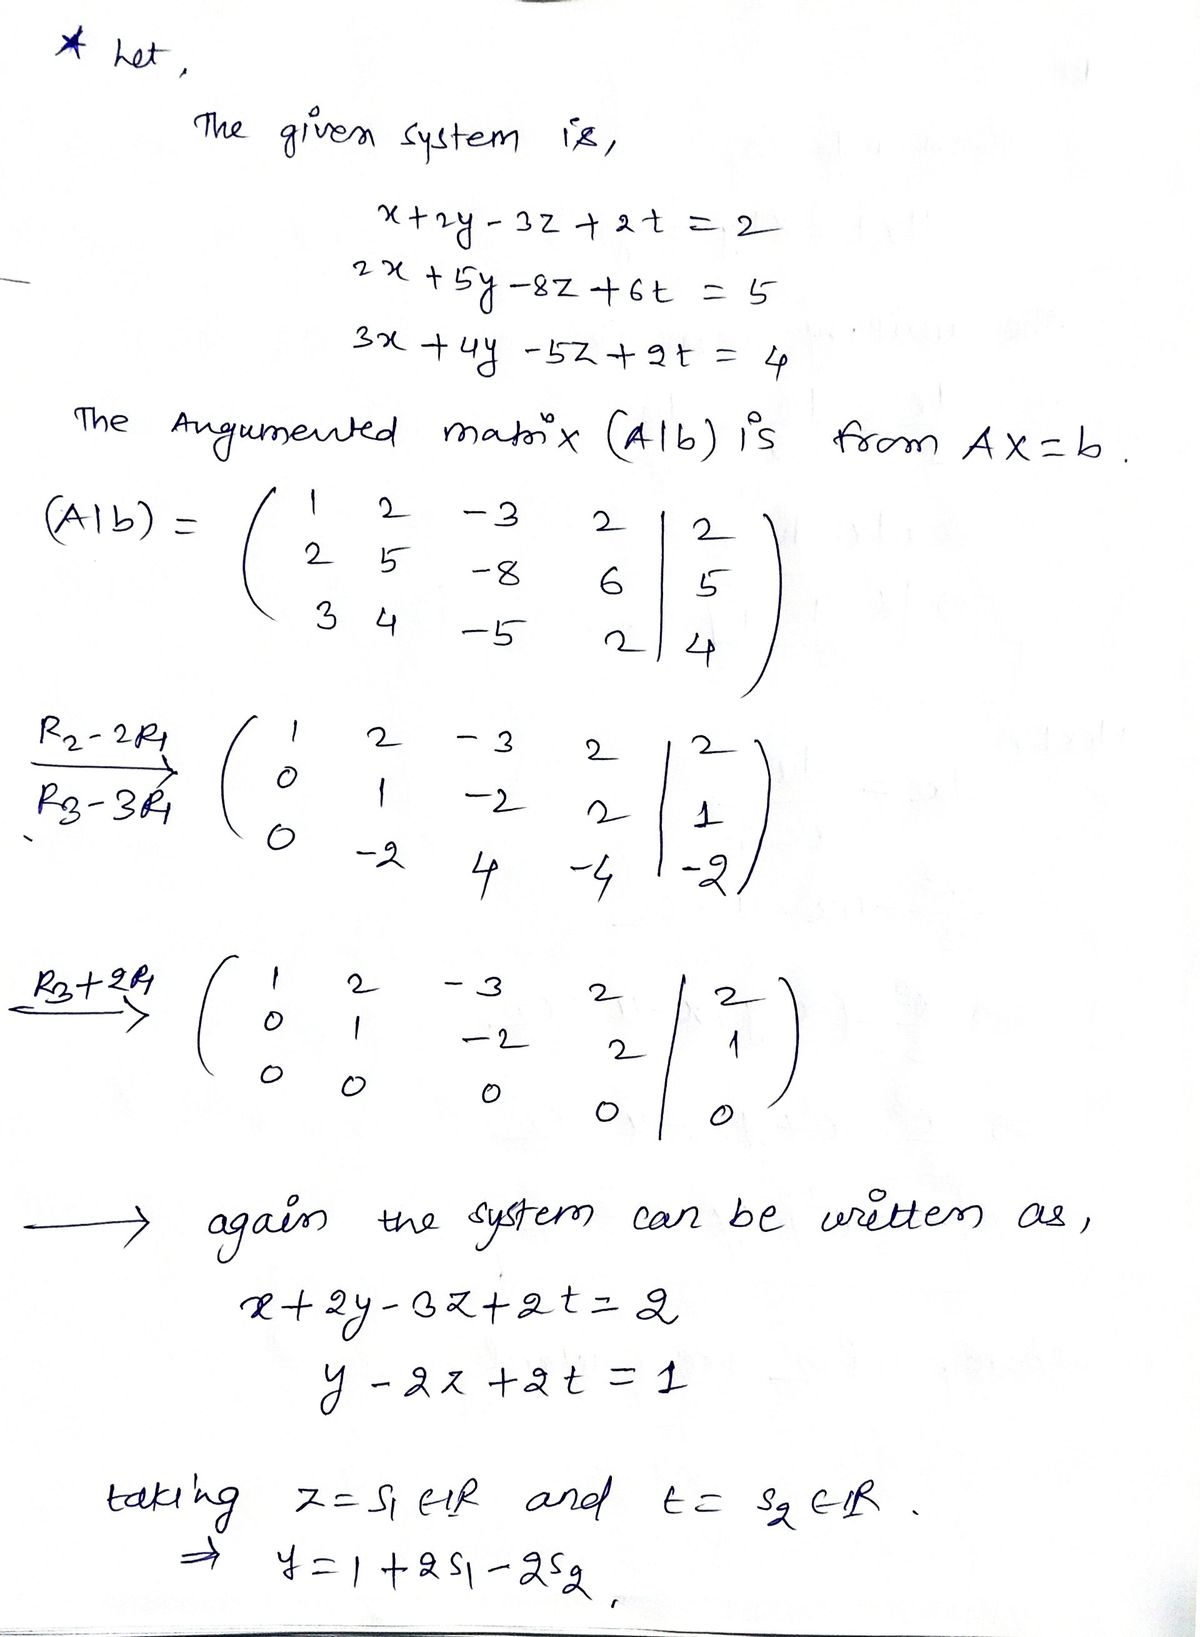 * Let,
The given system is,
x+2y-3z+2t=2
2x+5y-8z+6t=5
3x+4y-5z+2t=4
The Angumented matrix (A|b) is from AX=b.
(A|b) = ( 1 2 -3 2 | 2
2 5 -8 6 | 5
3 4 -5 2 | 4 )
R2-2R1
R3-3R1
( 1 2 -3 2 | 2
0 1 -2 2 | 1
0 -2 4 -4 | -2 )
R3+2R1
( 1 2 -3 2 | 2
0 1 -2 2 | 1
0 0 0 0 | 0 )
→ again the system can be written as,
x+2y-3z+2t=2
y-2z+2t=1
taking z=s1∈IR and t=s2∈IR.
⇒ y=1+2s1-2s2,